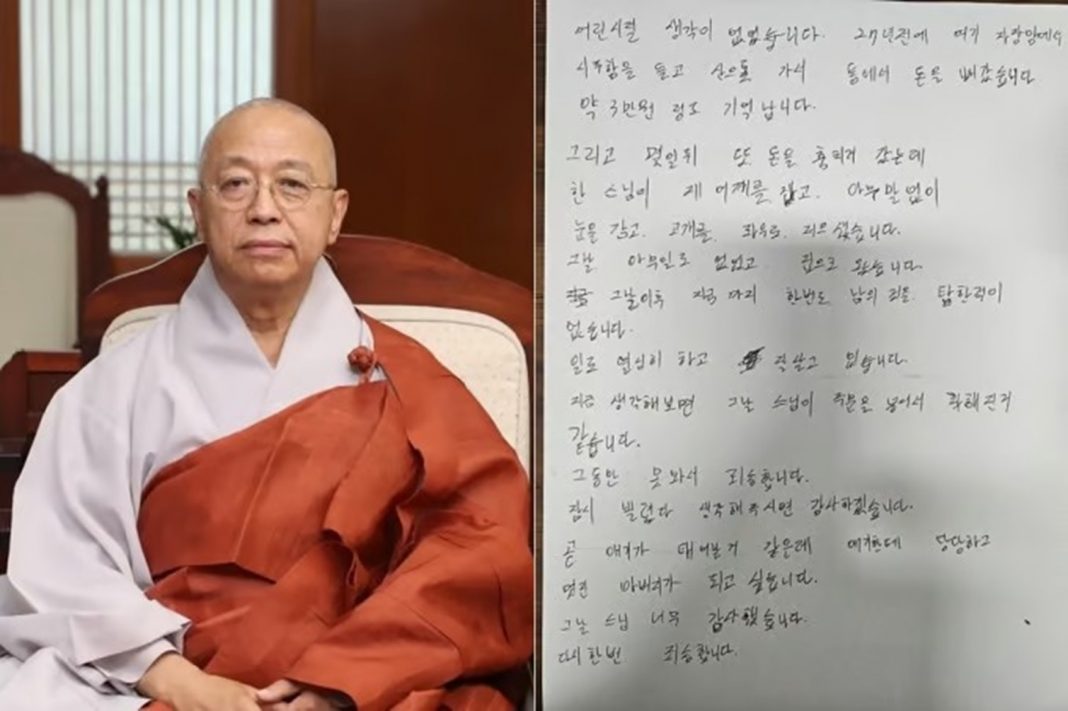 어린시절 생각이 없었습니다. 27년전에 여기 자장암에서
시주함을 들고 산으로 가서 통에서 돈을 빼갔습니다
약 3만원 정도 기억 납니다.
그리고 몇일뒤 또 돈을 훔치러 갔는데
한 스님이 제 어깨를 잡고. 아무말 없이
눈을 감고. 고개를. 좌우로. 저으셨습니다.
그날 아무일도 없었고 집으로 왔습니다.
그날이후 지금 까지 한번도 남의 것을. 탐한적이
없습니다.
일도 열심히 하고 잘살고 있습니다.
지금 생각해보면 그날 스님이 주문을 넣어서 착해진거
같습니다.
그동안 못와서 죄송합니다.
잠시 빌렸다 생각해주시면 감사하겠습니다.
곧 애기가 태어날거 같은데 애기한테 당당하고
멋진 아버지가 되고 싶습니다.
그날 스님 너무 감사했습니다.
다시한번 죄송합니다.